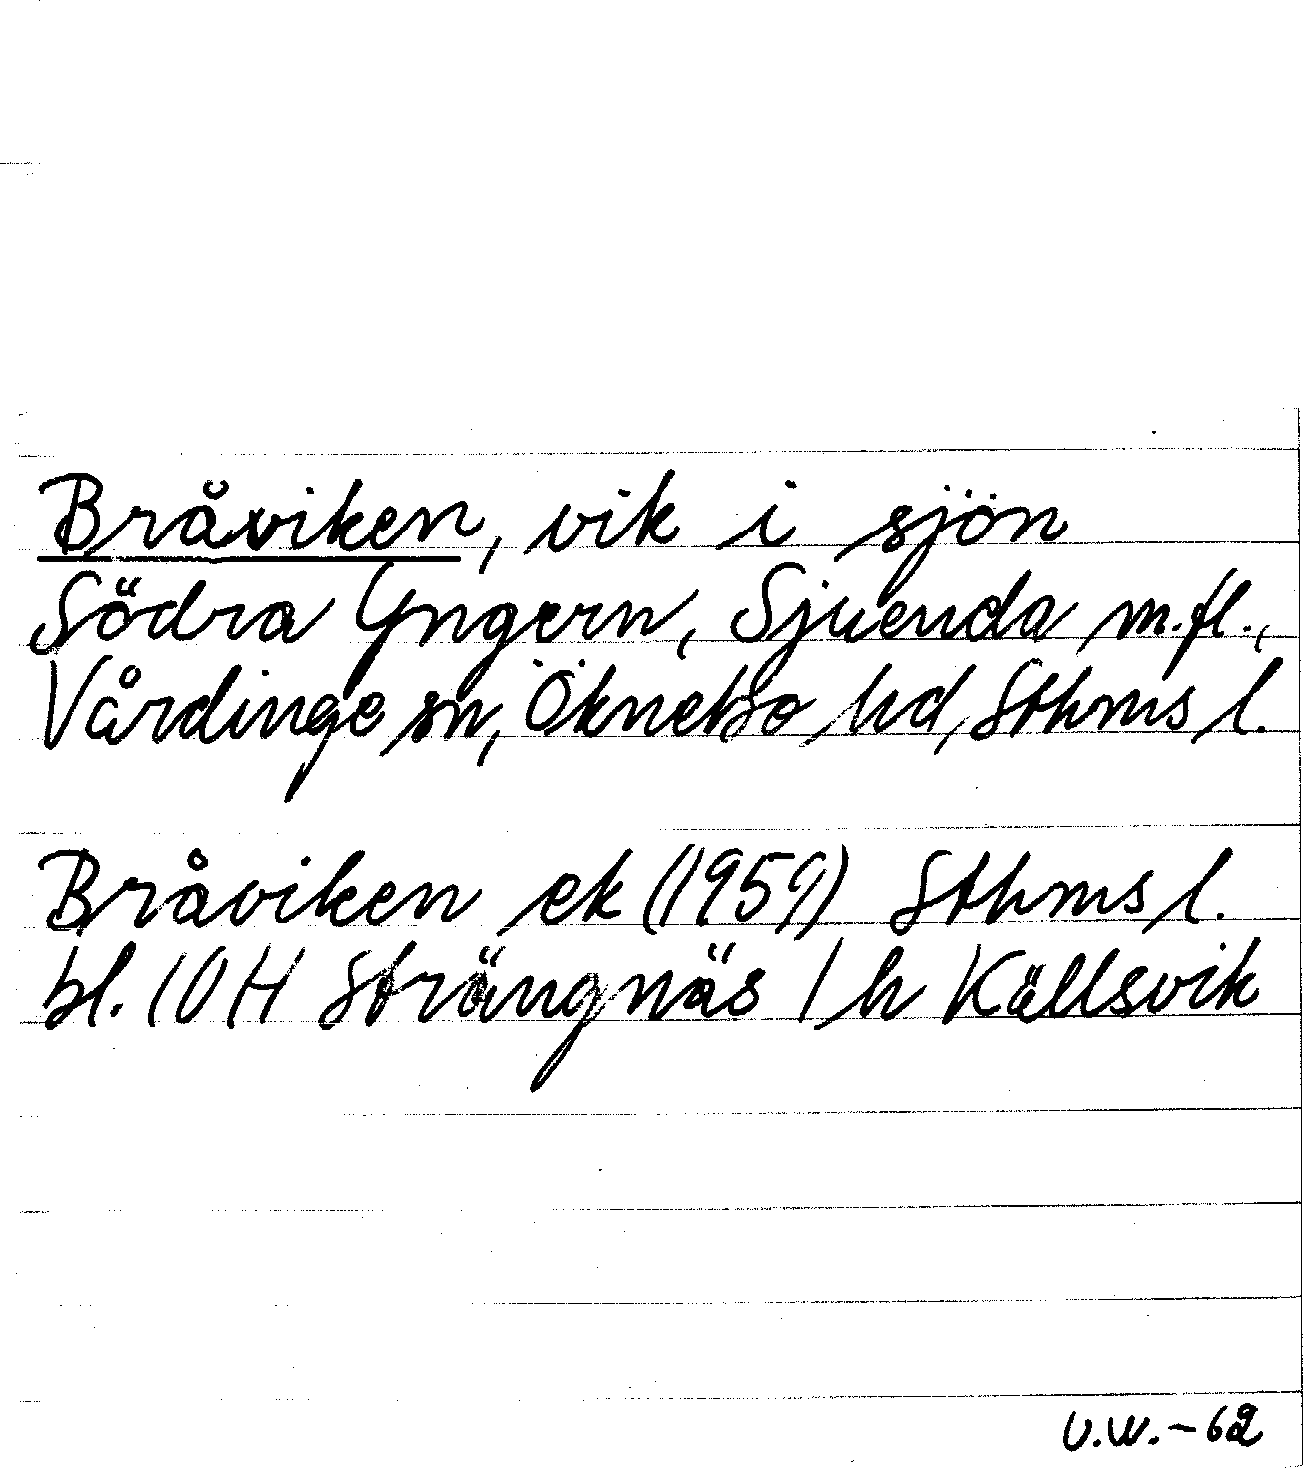 Bråviken, vik i sjön
Södra Yngern, Sjuenda m.fl.,
Vårdinge sn, Öknebo hd, Sthms l.
Bråviken ek (1959) Sthms l.
bl. 10H Strängnäs / h Källsvik
U.W. - 62